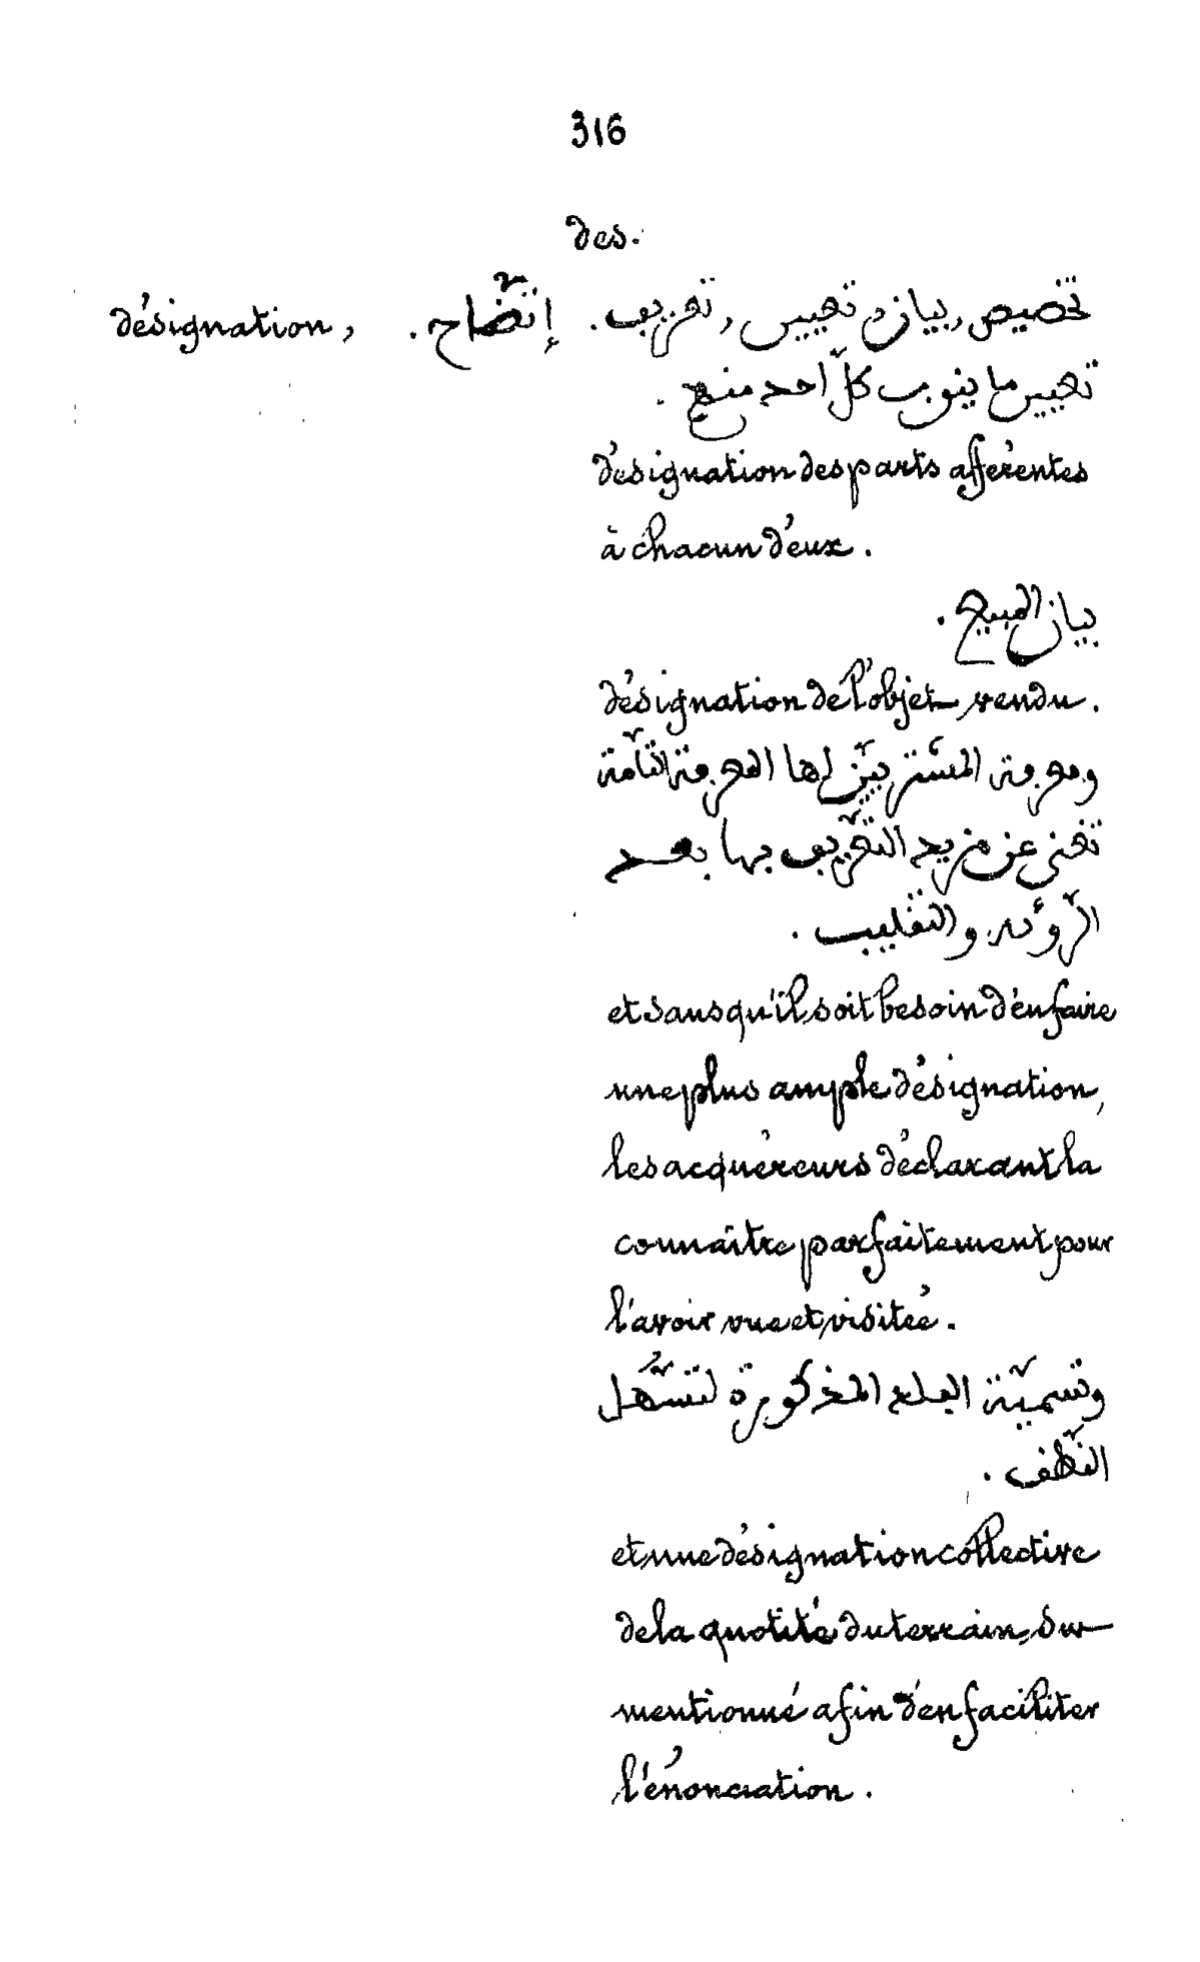 316
des.
désignation, تخصيص, بيان, تعيين, تعريف. إتّضاح.
تعيين ما ينوب كلّ احد منهم.
désignation des parts afférentes
à chacun d'eux.
بيان المبيع.
désignation de l'objet vendu.
ومعرفة المشتريَيْن لها المعرفة التّامّة
تغني عن مزيد التّعريف بها بعد
الرّؤية والتقليب.
et sans qu'il soit besoin d'en faire
une plus ample désignation,
les acquéreurs déclarant la
connaître parfaitement pour
l'avoir vue et visitée.
وتسميّة القلع المذكورة لتسّهل
النّطف.
et une désignation collective
de la quotité du terrain, sur-
mentionné afin d'en faciliter
l'énonciation.